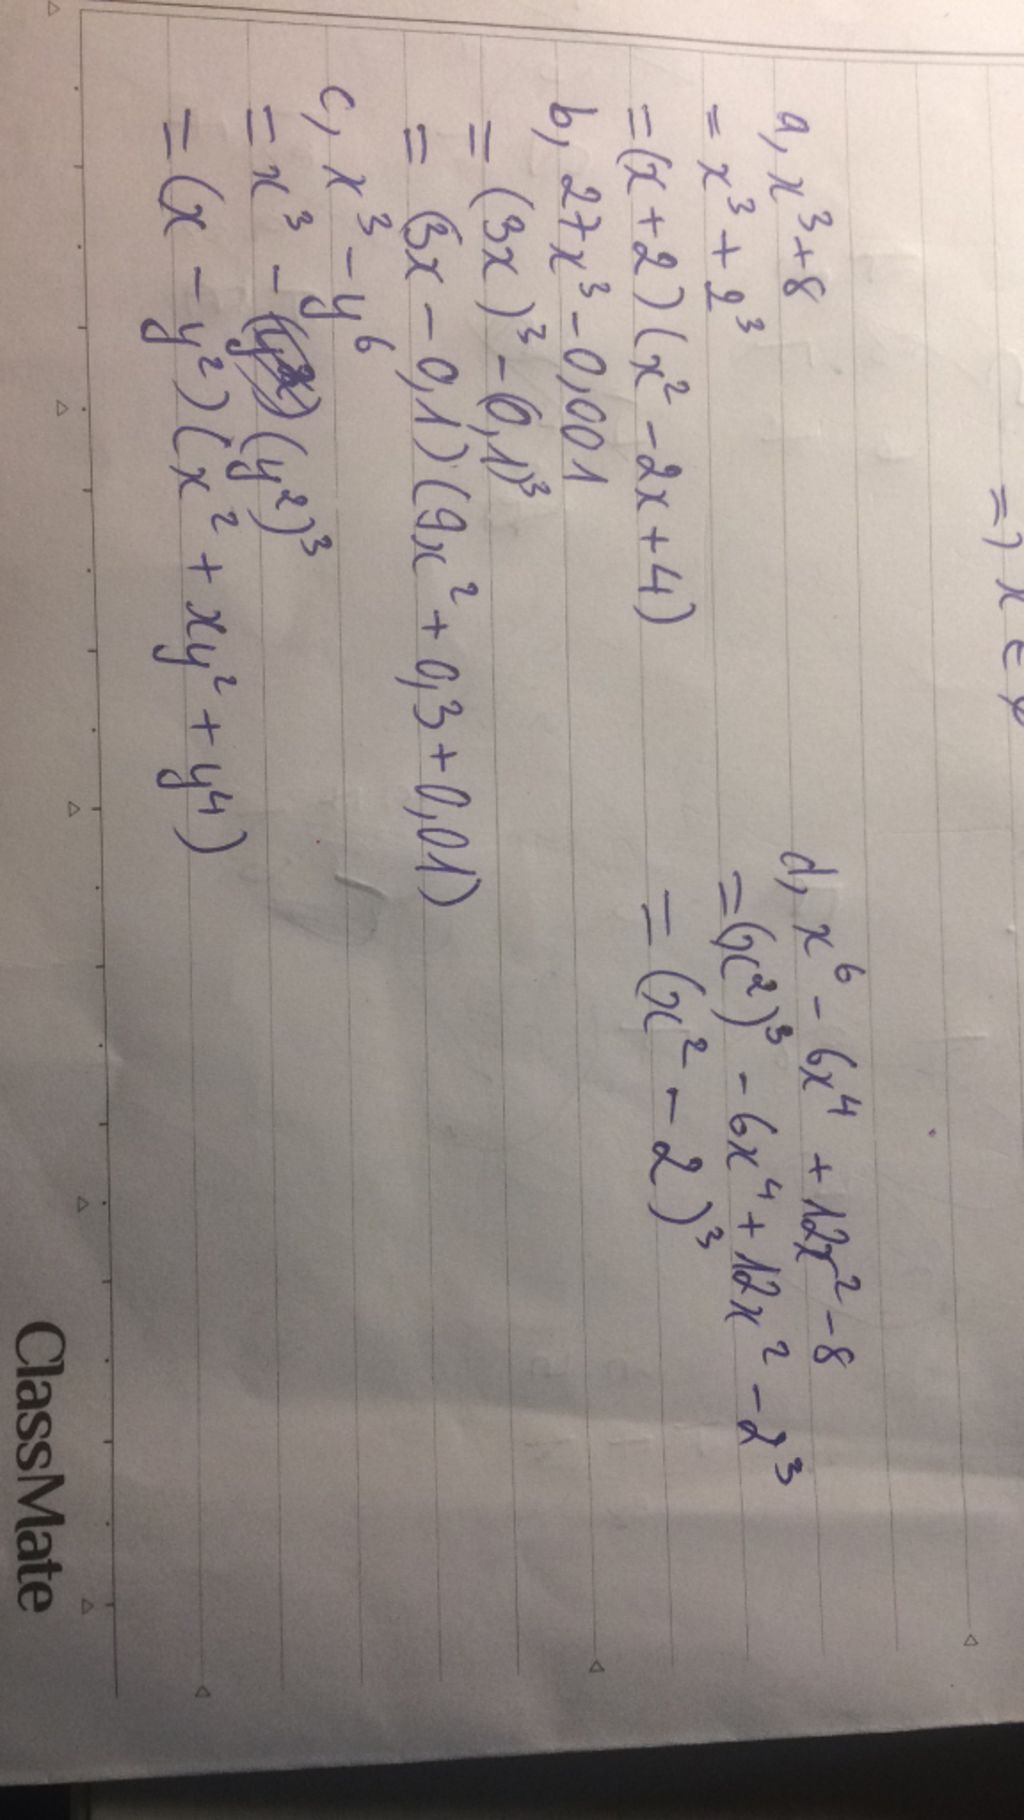 =) x ∈
a, x³+8
= x³ + 2³
= (x + 2) (x² - 2x + 4)
b, 27x³ - 0,001
= (3x)³ - 0,1)³
= (3x - 0,1) (9x² + 0,3 + 0,01)
c, x³ - y⁶
= x³ - (y²)³
= (x - y²) (x² + xy² + y⁴)
d, x⁶ - 6x⁴ + 12x² - 8
= (x²)³ - 6x⁴ + 12x² - 2³
= (x² - 2)³
ClassMate